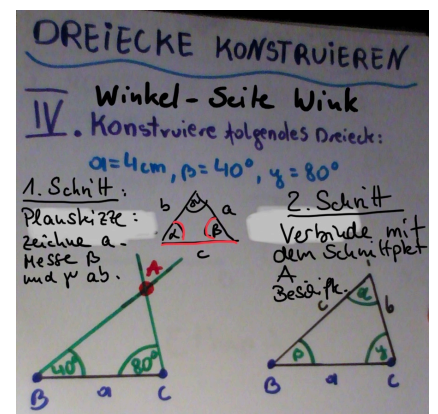 DREIECKE KONSTRUIEREN
IV. Winkel-Seite Wink
Konstruiere folgendes Dreieck:
a=4cm, β=40°, γ=80°
1. Schritt:
Planskizze:
zeichne a.
Messe β
und γ ab.
b
a
α
β
c
2. Schritt
Verbinde mit
dem Schnittpkt
A
Beschrift.
A
40°
80°
B
a
C
c
α
b
β
γ
B
a
C